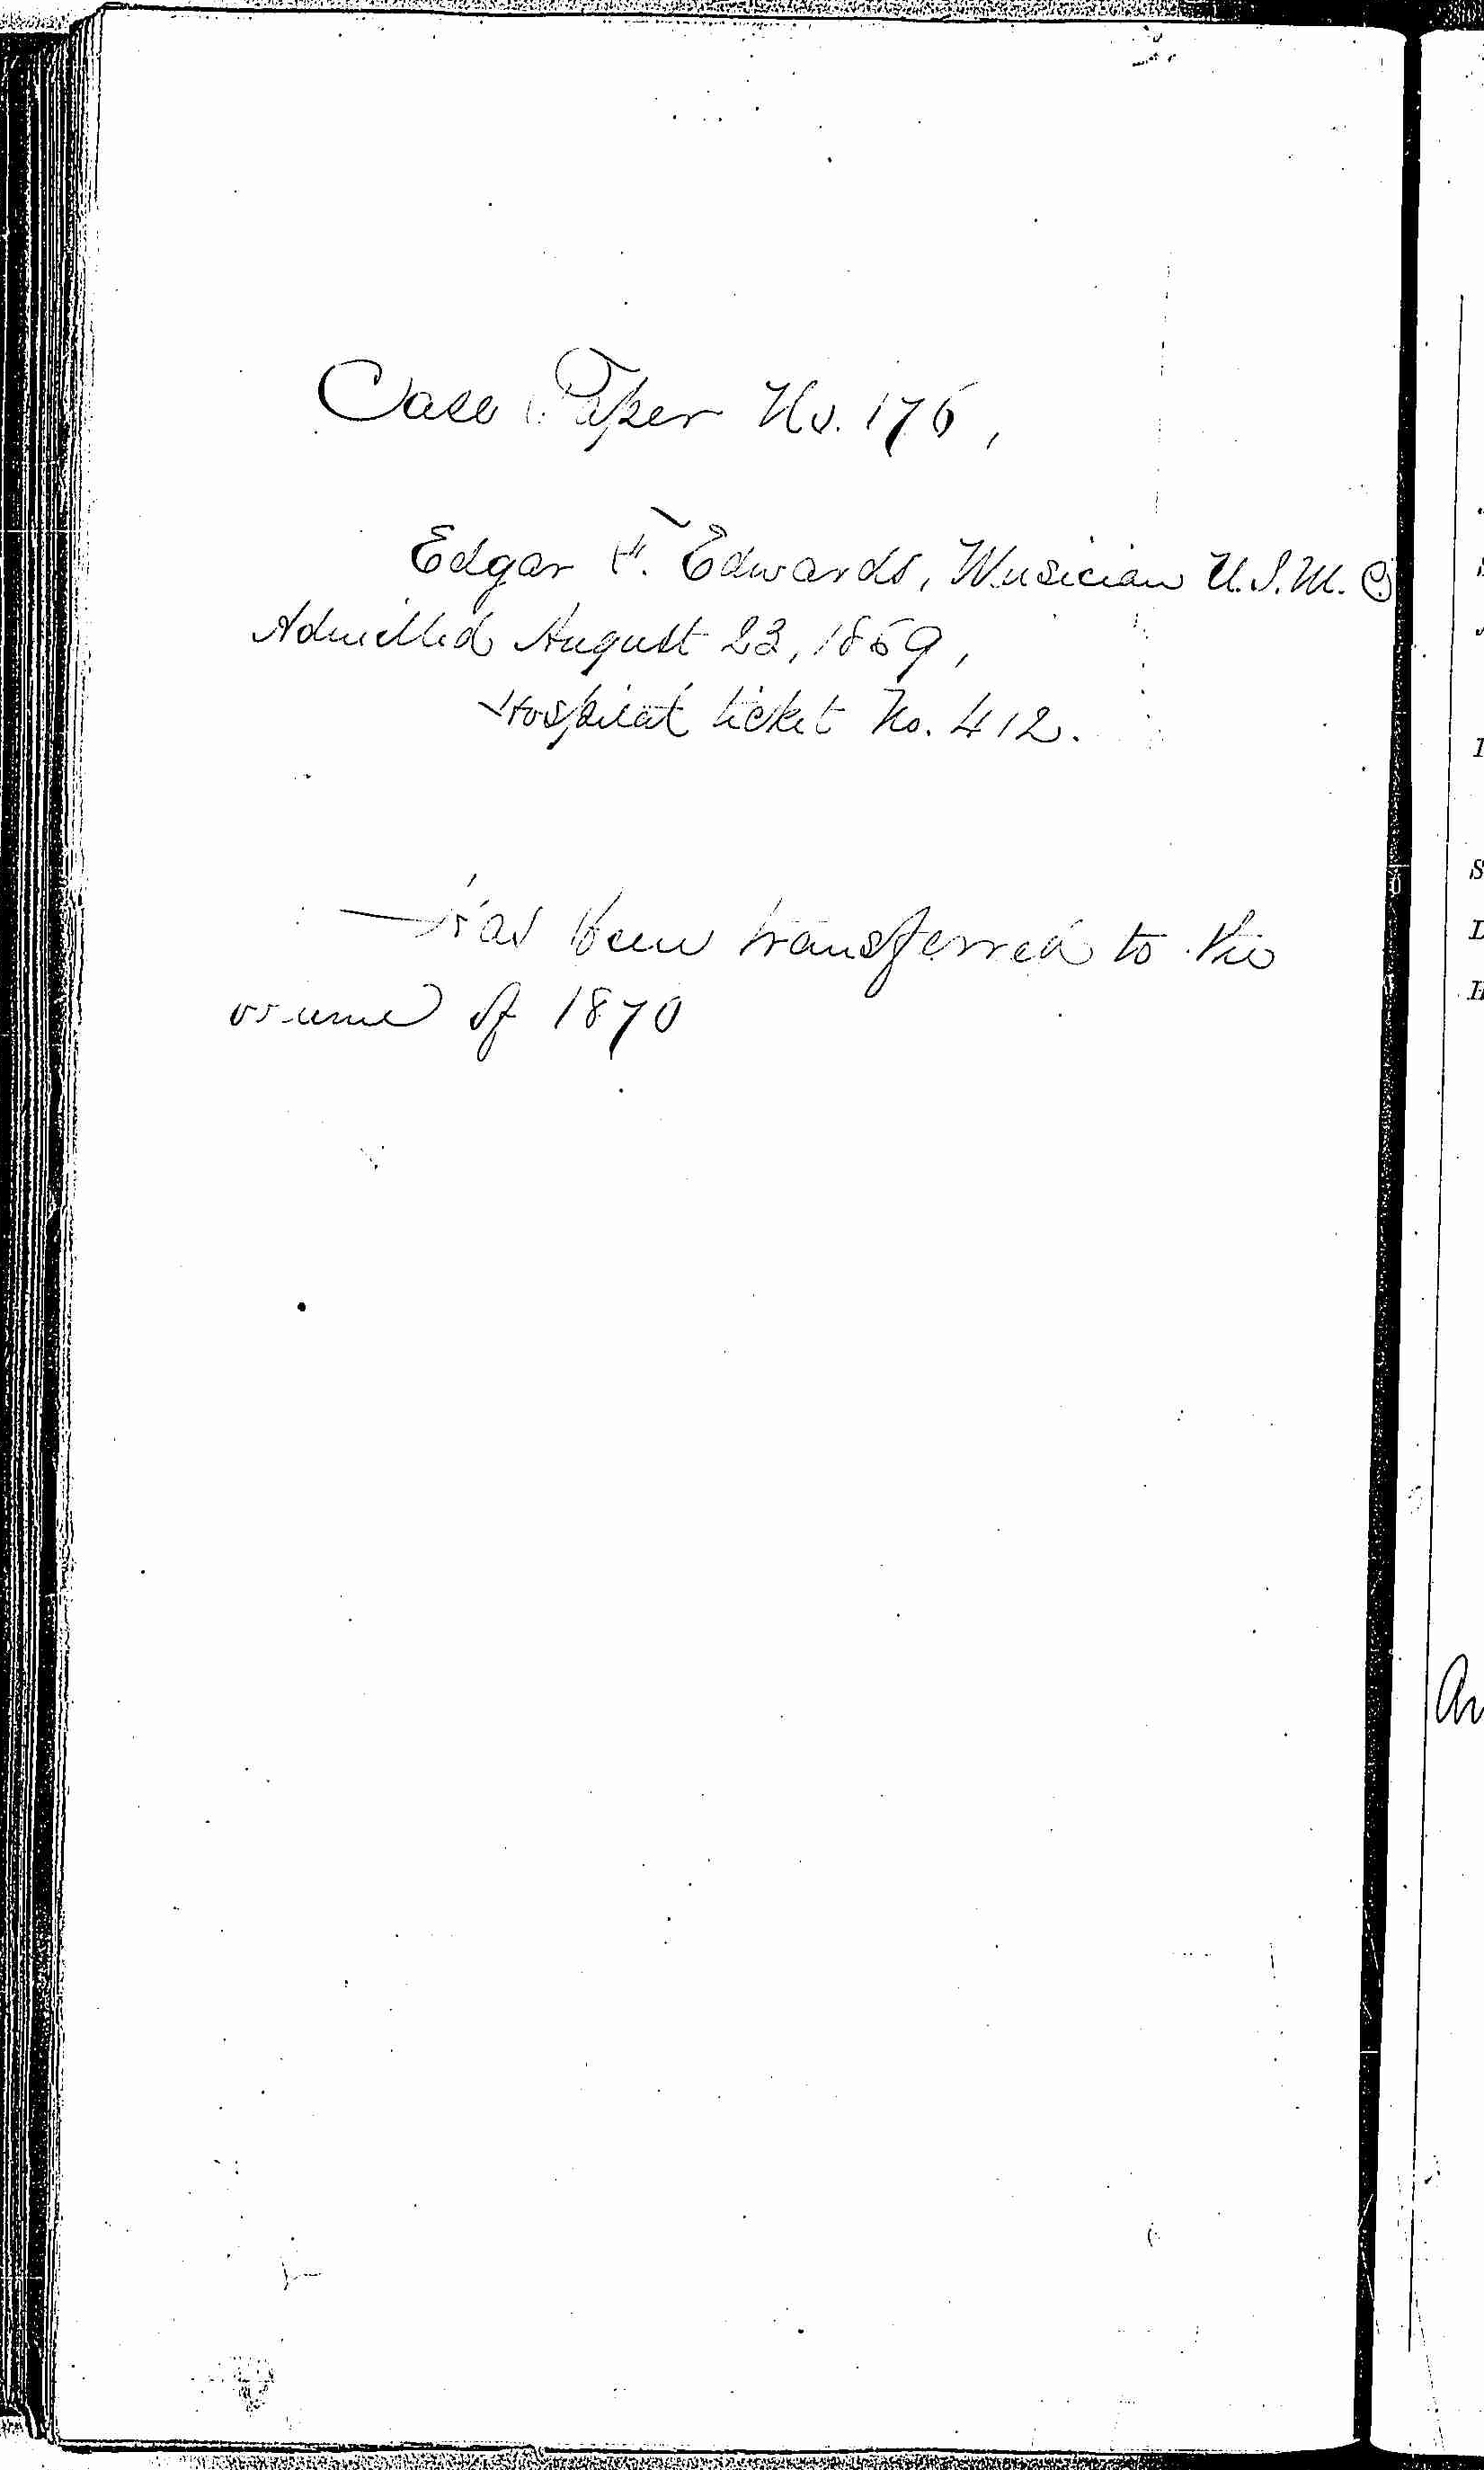 Case Paper No. 176,
Edgar F. Edwards, Musician U.S.M.C.
Admitted August 23, 1869,
Hospital ticket No. 412.
—has been transferred to the
volume of 1870